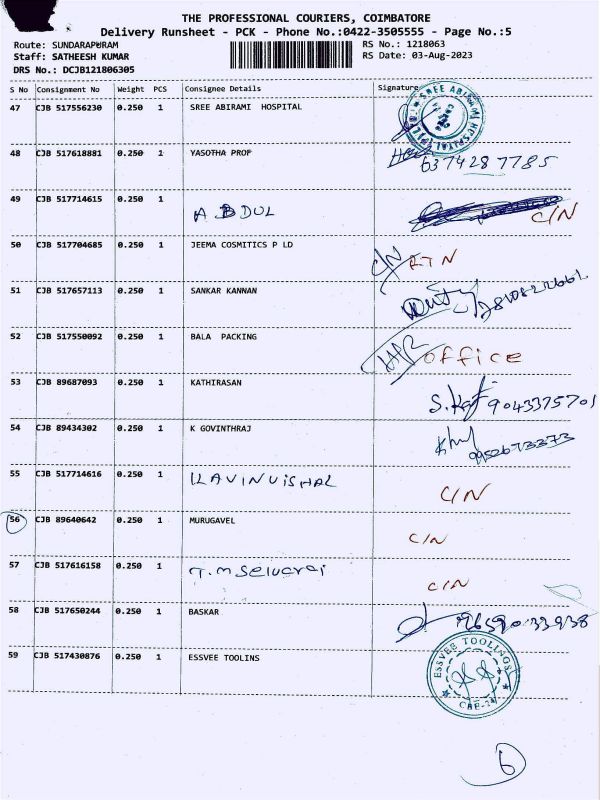 THE PROFESSIONAL COURIERS, COIMBATORE
Delivery Runsheet - PCK - Phone No.:0422-3505555 - Page No.:5
Route: SUNDARAPURAM
RS No.: 1218063
Staff: SATHEESH KUMAR
RS Date: 03-Aug-2023
DRS No.: DCJB121806305
S No Consignment No Weight PCS Consignee Details Signature
47 CJB 517556230 0.250 1 SREE ABIRAMI HOSPITAL
48 CJB 517618881 0.250 1 YASOTHA PROP 6374287785
49 CJB 517714615 0.250 1 ABDUL C/N
50 CJB 517704685 0.250 1 JEEMA COSMITICS P LD C/N RTN
51 CJB 517657113 0.250 1 SANKAR KANNAN
52 CJB 517550092 0.250 1 BALA PACKING office
53 CJB 89687093 0.250 1 KATHIRASAN 9043375701
54 CJB 89434302 0.250 1 K GOVINTHRAJ 9952673373
55 CJB 517714616 0.250 1 ILAVINVISHAL C/N
56 CJB 89640642 0.250 1 MURUGAVEL C/N
57 CJB 517616158 0.250 1 T.M Selvaraj C/N
58 CJB 517650244 0.250 1 BASKAR
59 CJB 517430876 0.250 1 ESSVEE TOOLINS ESSVEE TOOLINGS
6